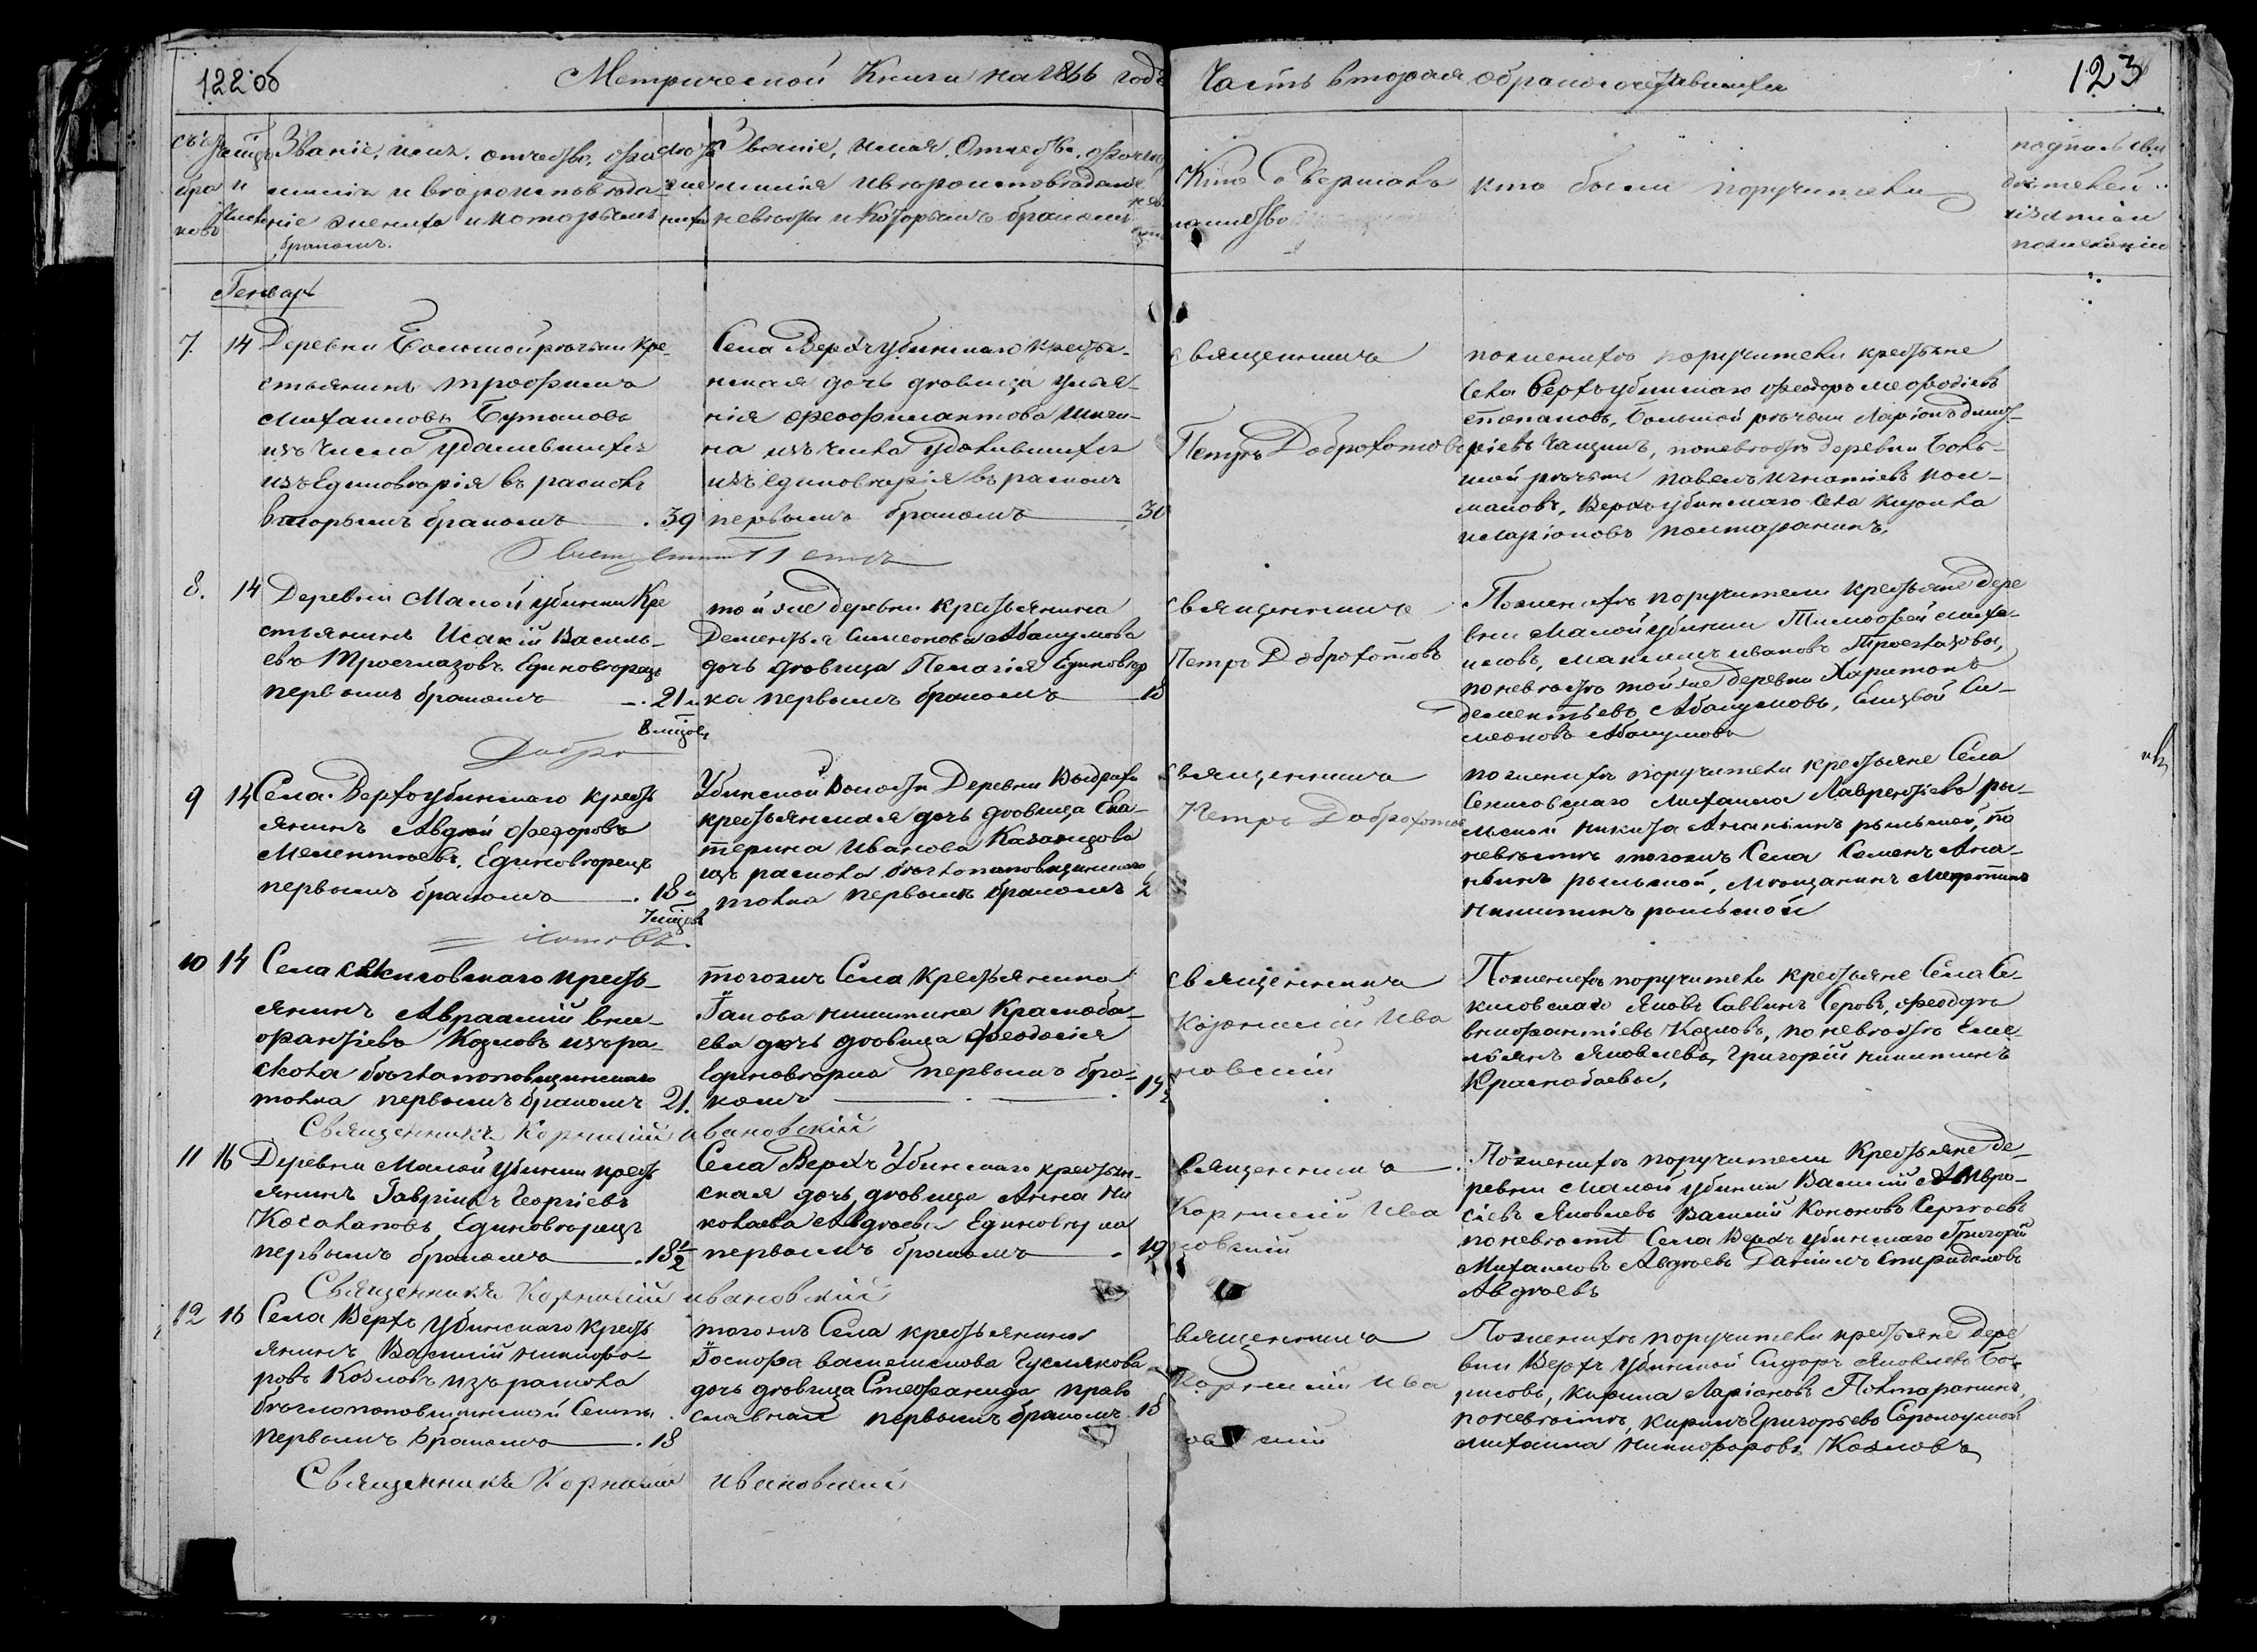 122 об
Метрической Книги на 1866 годъ
Часть вторая о бракосочетавшихся
123
Званіе, имя, отчество, фа
милія и вероисповеда
ніе жениха и которымъ
бракомъ.
Званіе, имя, Отчество, фа
милія и вероисповедание
невесты и Которымъ бракомъ
Кто Совершалъ
таинство
кто были поручители
подпись сви
детелей
Генварь
7. 14 Деревни Большой речьки Кре-
стьянинъ Трофимъ
Михаиловъ Бутаковъ
изъ Числа Удалившихся
изъ Единоверія въ расколъ
вторымъ бракомъ 39
Села Верхъубинскаго кресть-
нская дочь девица Улья-
нія Феофилактова
на изъ числа удалившихся
изъ единоверія въ расколъ
первымъ бракомъ 30
священникъ
Петръ Доброхотовъ
по женихе поручители крестьяне
Села Верхъубинскаго Феодоръ Мефодіевъ
Степановъ, Большой речьки Ларіонъ Дмит-
ріевъ Чащинъ, по невесте деревни Боль-
шой речьки Павелъ Игнатіевъ Кол-
маковъ, Верхъубинскаго Села Кирила
Иларіоновъ Полтаранинъ.
Священникъ Петръ
8. 14 Деревни Малой убинки Кре
стьянинъ Исакій Василь-
евъ Троеглазовъ Единоверецъ
первымъ бракомъ 21 и
8 мцовъ
той же деревни крестьянина
Дементья Симеонова Абакумова
дочь девица Пелагія Единовер
ка первымъ бракомъ 18
священникъ
Петръ Доброхотовъ
По женихе поручители крестьяне Дере
вни Малой убинки Тимофей Миха-
иловъ, Максимъ Ивановъ Троеглазовы,
по невесте той же деревни Харитонъ
Дементьевъ Абакумовъ, Елисей Си-
меоновъ Абакумовъ
Добро
9 14 Села Верхоубинскаго кресть
янинъ Авдей Федоровъ
Мелентьевъ, Единоверецъ
первымъ бракомъ 18 и
7 мцовъ
Убинской Волости Деревни Выдрихи
крестьянская дочь девица Ека-
терина Иванова Казанцова
изъ раскола беглопоповщинскаго
толка первымъ бракомъ
священникъ
Петръ Доброхотовъ
по женихе поручители крестьяне Села
Секисовскаго Михаила Лаврентьевъ Ры-
льской Никита Ананьинъ Рыльской, по
невесте тогожъ Села Семенъ Ана-
ньинъ Рыльской, Мещанинъ
Никитинъ Рыльской
хотовъ.
10 14 Села Секисовскаго кресть-
янинъ Авраамій Вни-
фантьевъ Козловъ изъ ра-
скола беглопоповщинскаго
толка первымъ бракомъ 21.
тогожъ Села Крестьянина
Іакова Никитина Краснoба-
ева дочь девица Феодосія
Единоверка первымъ бра-
комъ
священникъ
Корнилій Ива
новскій
По женихе поручители крестьяне Села Се-
кисовскаго Яковъ Саввинъ Серовъ, Феодоръ
Внифантіевъ Козловъ, по невесте Еме-
льянъ Яковлевъ, Григорій Никитинъ
Краснобаевы.
Священникъ Корнилій Ивановскій
11 16 Деревни Малой Убинки кресть
янинъ Гавріилъ Георгіевъ
Косолаповъ, Единоверецъ
первымъ бракомъ 18 1/2
Села Верхъ Убинскаго крестьян-
ская дочь, девица Анна Ни
колаева Авдеева Единоверка
первымъ бракомъ 19
священникъ
Корнилій Ива
новскій
По женихе поручители Крестьяне Де-
ревни Малой убинки Василій Амвро-
сіевъ Яковлевъ Василій Кононовъ Сергеевъ
по невесте Села Верхъ убинскаго Григорій
Михаиловъ Авдеевъ Даніилъ Спиридоновъ
Авдеевъ
Священникъ Корнилій Ивановскій
12 16 Села Верхъ Убинскаго кресть
янинъ Василій Никифо-
ровъ Козловъ изъ раскола
беглопоповщинской Секты
первымъ бракомъ 18
тогожъ Села крестьянина
дочь девица Стефанида право
славная первымъ бракомъ 18
священникъ
Корнилій Ива
новскій
По женихе поручители крестьяне дере
вни Верхъ Убинской Сидоръ Яковлевъ Бо-
рисовъ, Кирила Ларіоновъ Полтаранинъ,
по невесте, Кирилъ Григорьевъ
Михаила Никифоровъ Козловъ
Священникъ Корнилій Ивановскій